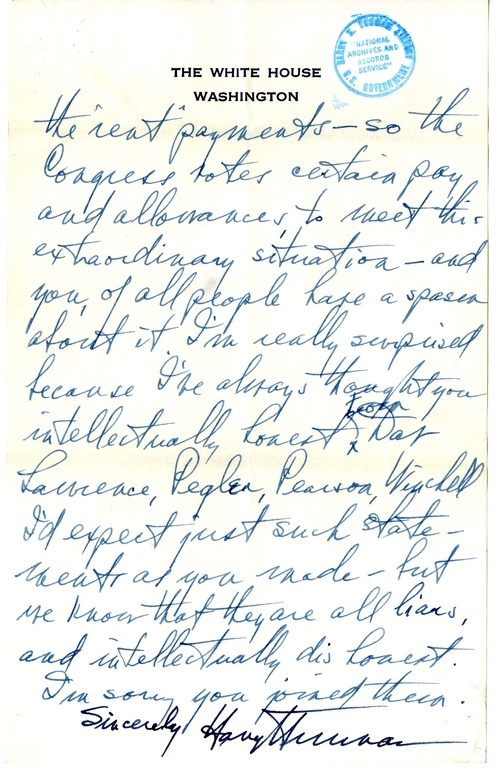 HARRY S. TRUMAN LIBRARY
"NATIONAL
ARCHIVES AND
RECORDS
SERVICE"
U.S. GOVERNMENT
THE WHITE HOUSE
WASHINGTON
the "rent" payments – so the
Congress votes certain pay
and allowances, to meet this
extraordinary situation – and
you, of all people have a spasm
about it. I'm really surprised
because I've always thought you
intellectually honest.
From
Dav
Lawrence, Pegler, Pearson, Winchell
I'd expect just such state-
ments as you made – but
we know that they are all liars,
and intellectually dishonest.
I'm sorry you joined them.
Sincerely Harry Truman